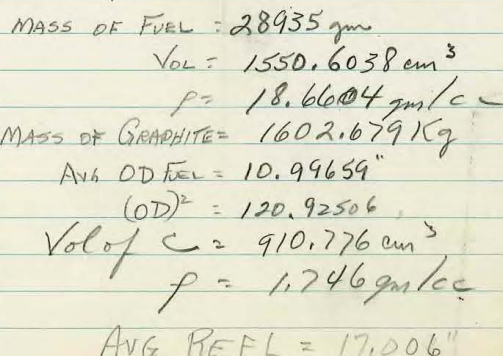 MASS OF FUEL = 28935 gm
VOL = 1550.6038 cm³
ρ = 18.6604 gm/cc
MASS OF GRAPHITE = 1602.679 Kg
AVG OD FUEL = 10.99659"
(OD)² = 120.92506
Vol of C = 910.776 cm³
ρ = 1.746 gm/cc
AVG REFL = 17.006"